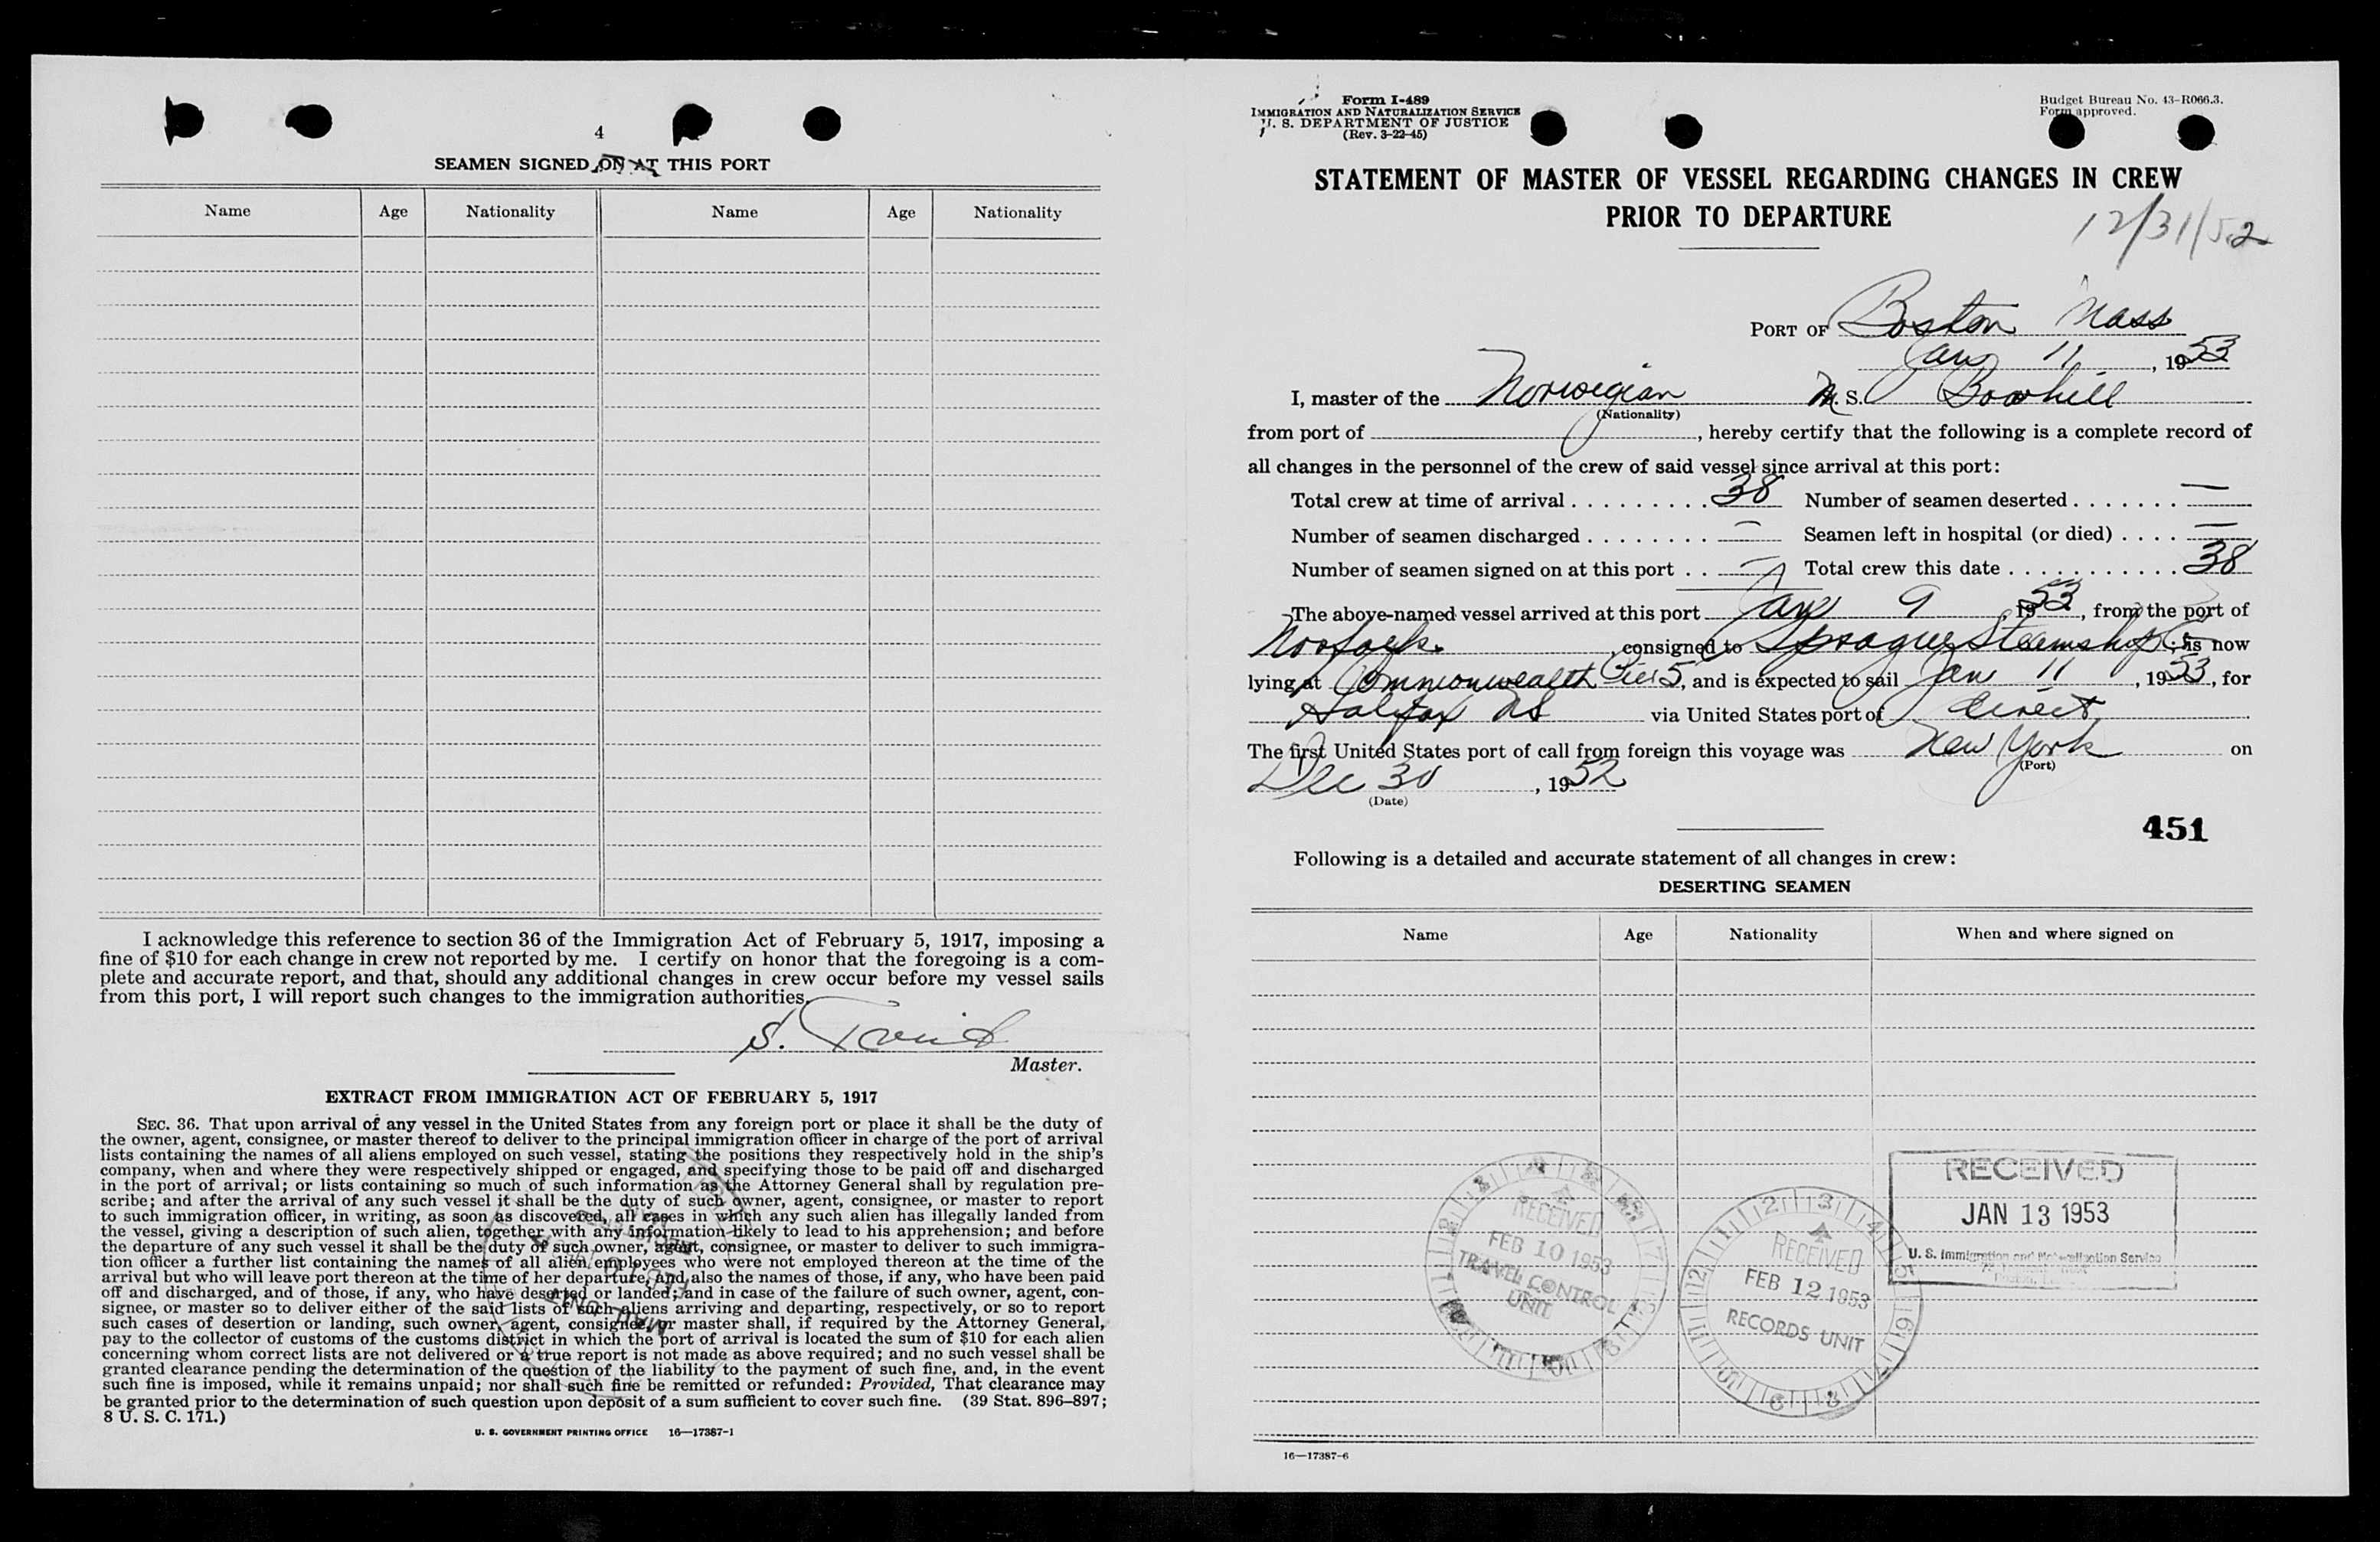 4
SEAMEN SIGNED ON AT THIS PORT
Name Age Nationality Name Age Nationality
I acknowledge this reference to section 36 of the Immigration Act of February 5, 1917, imposing a
fine of $10 for each change in crew not reported by me. I certify on honor that the foregoing is a com-
plete and accurate report, and that, should any additional changes in crew occur before my vessel sails
from this port, I will report such changes to the immigration authorities.
S.
Master.
EXTRACT FROM IMMIGRATION ACT OF FEBRUARY 5, 1917
SEC. 36. That upon arrival of any vessel in the United States from any foreign port or place it shall be the duty of
the owner, agent, consignee, or master thereof to deliver to the principal immigration officer in charge of the port of arrival
lists containing the names of all aliens employed on such vessel, stating the positions they respectively hold in the ship's
company, when and where they were respectively shipped or engaged, and specifying those to be paid off and discharged
in the port of arrival; or lists containing so much of such information as the Attorney General shall by regulation pre-
scribe; and after the arrival of any such vessel it shall be the duty of such owner, agent, consignee, or master to report
to such immigration officer, in writing, as soon as discovered, all cases in which any such alien has illegally landed from
the vessel, giving a description of such alien, together with any information likely to lead to his apprehension; and before
the departure of any such vessel it shall be the duty of such owner, agent, consignee, or master to deliver to such immigra-
tion officer a further list containing the names of all alien employees who were not employed thereon at the time of the
arrival but who will leave port thereon at the time of her departure, and also the names of those, if any, who have been paid
off and discharged, and of those, if any, who have deserted or landed; and in case of the failure of such owner, agent, con-
signee, or master so to deliver either of the said lists of such aliens arriving and departing, respectively, or so to report
such cases of desertion or landing, such owner, agent, consignee, or master shall, if required by the Attorney General,
pay to the collector of customs of the customs district in which the port of arrival is located the sum of $10 for each alien
concerning whom correct lists are not delivered or a true report is not made as above required; and no such vessel shall be
granted clearance pending the determination of the question of the liability to the payment of such fine, and, in the event
such fine is imposed, while it remains unpaid; nor shall such fine be remitted or refunded: Provided, That clearance may
be granted prior to the determination of such question upon deposit of a sum sufficient to cover such fine. (39 Stat. 896–897;
8 U. S. C. 171.)
U. S. GOVERNMENT PRINTING OFFICE 16—17387-1
Form I-489
IMMIGRATION AND NATURALIZATION SERVICE
U. S. DEPARTMENT OF JUSTICE
(Rev. 3-22-45)
Budget Bureau No. 43-R066.3.
Form approved.
STATEMENT OF MASTER OF VESSEL REGARDING CHANGES IN CREW
PRIOR TO DEPARTURE
12/31/52
PORT OF Boston Mass
Jan 11, 1953
I, master of the Norwegian M. S. Bowhill
(Nationality)
from port of , hereby certify that the following is a complete record of
all changes in the personnel of the crew of said vessel since arrival at this port:
Total crew at time of arrival . . . . . . . . . 38 Number of seamen deserted . . . . . . . —
Number of seamen discharged . . . . . . . . — Seamen left in hospital (or died) . . . . —
Number of seamen signed on at this port . . — Total crew this date . . . . . . . . . . . 38
The above-named vessel arrived at this port Jan 9, 1953, from the port of
Norfolk, consigned to Sprague Steamship Co; is now
lying at Commonwealth Pier 5, and is expected to sail Jan 11, 1953, for
Halifax NS via United States port of direct
The first United States port of call from foreign this voyage was New York on
(Port)
Dec 30, 1952
(Date)
451
Following is a detailed and accurate statement of all changes in crew:
DESERTING SEAMEN
Name Age Nationality When and where signed on
RECEIVED
JAN 13 1953
U. S. Immigration and Naturalization Service
RECEIVED
FEB 10 1953
TRAVEL CONTROL
UNIT
RECEIVED
FEB 12 1953
RECORDS UNIT
16—17387-6